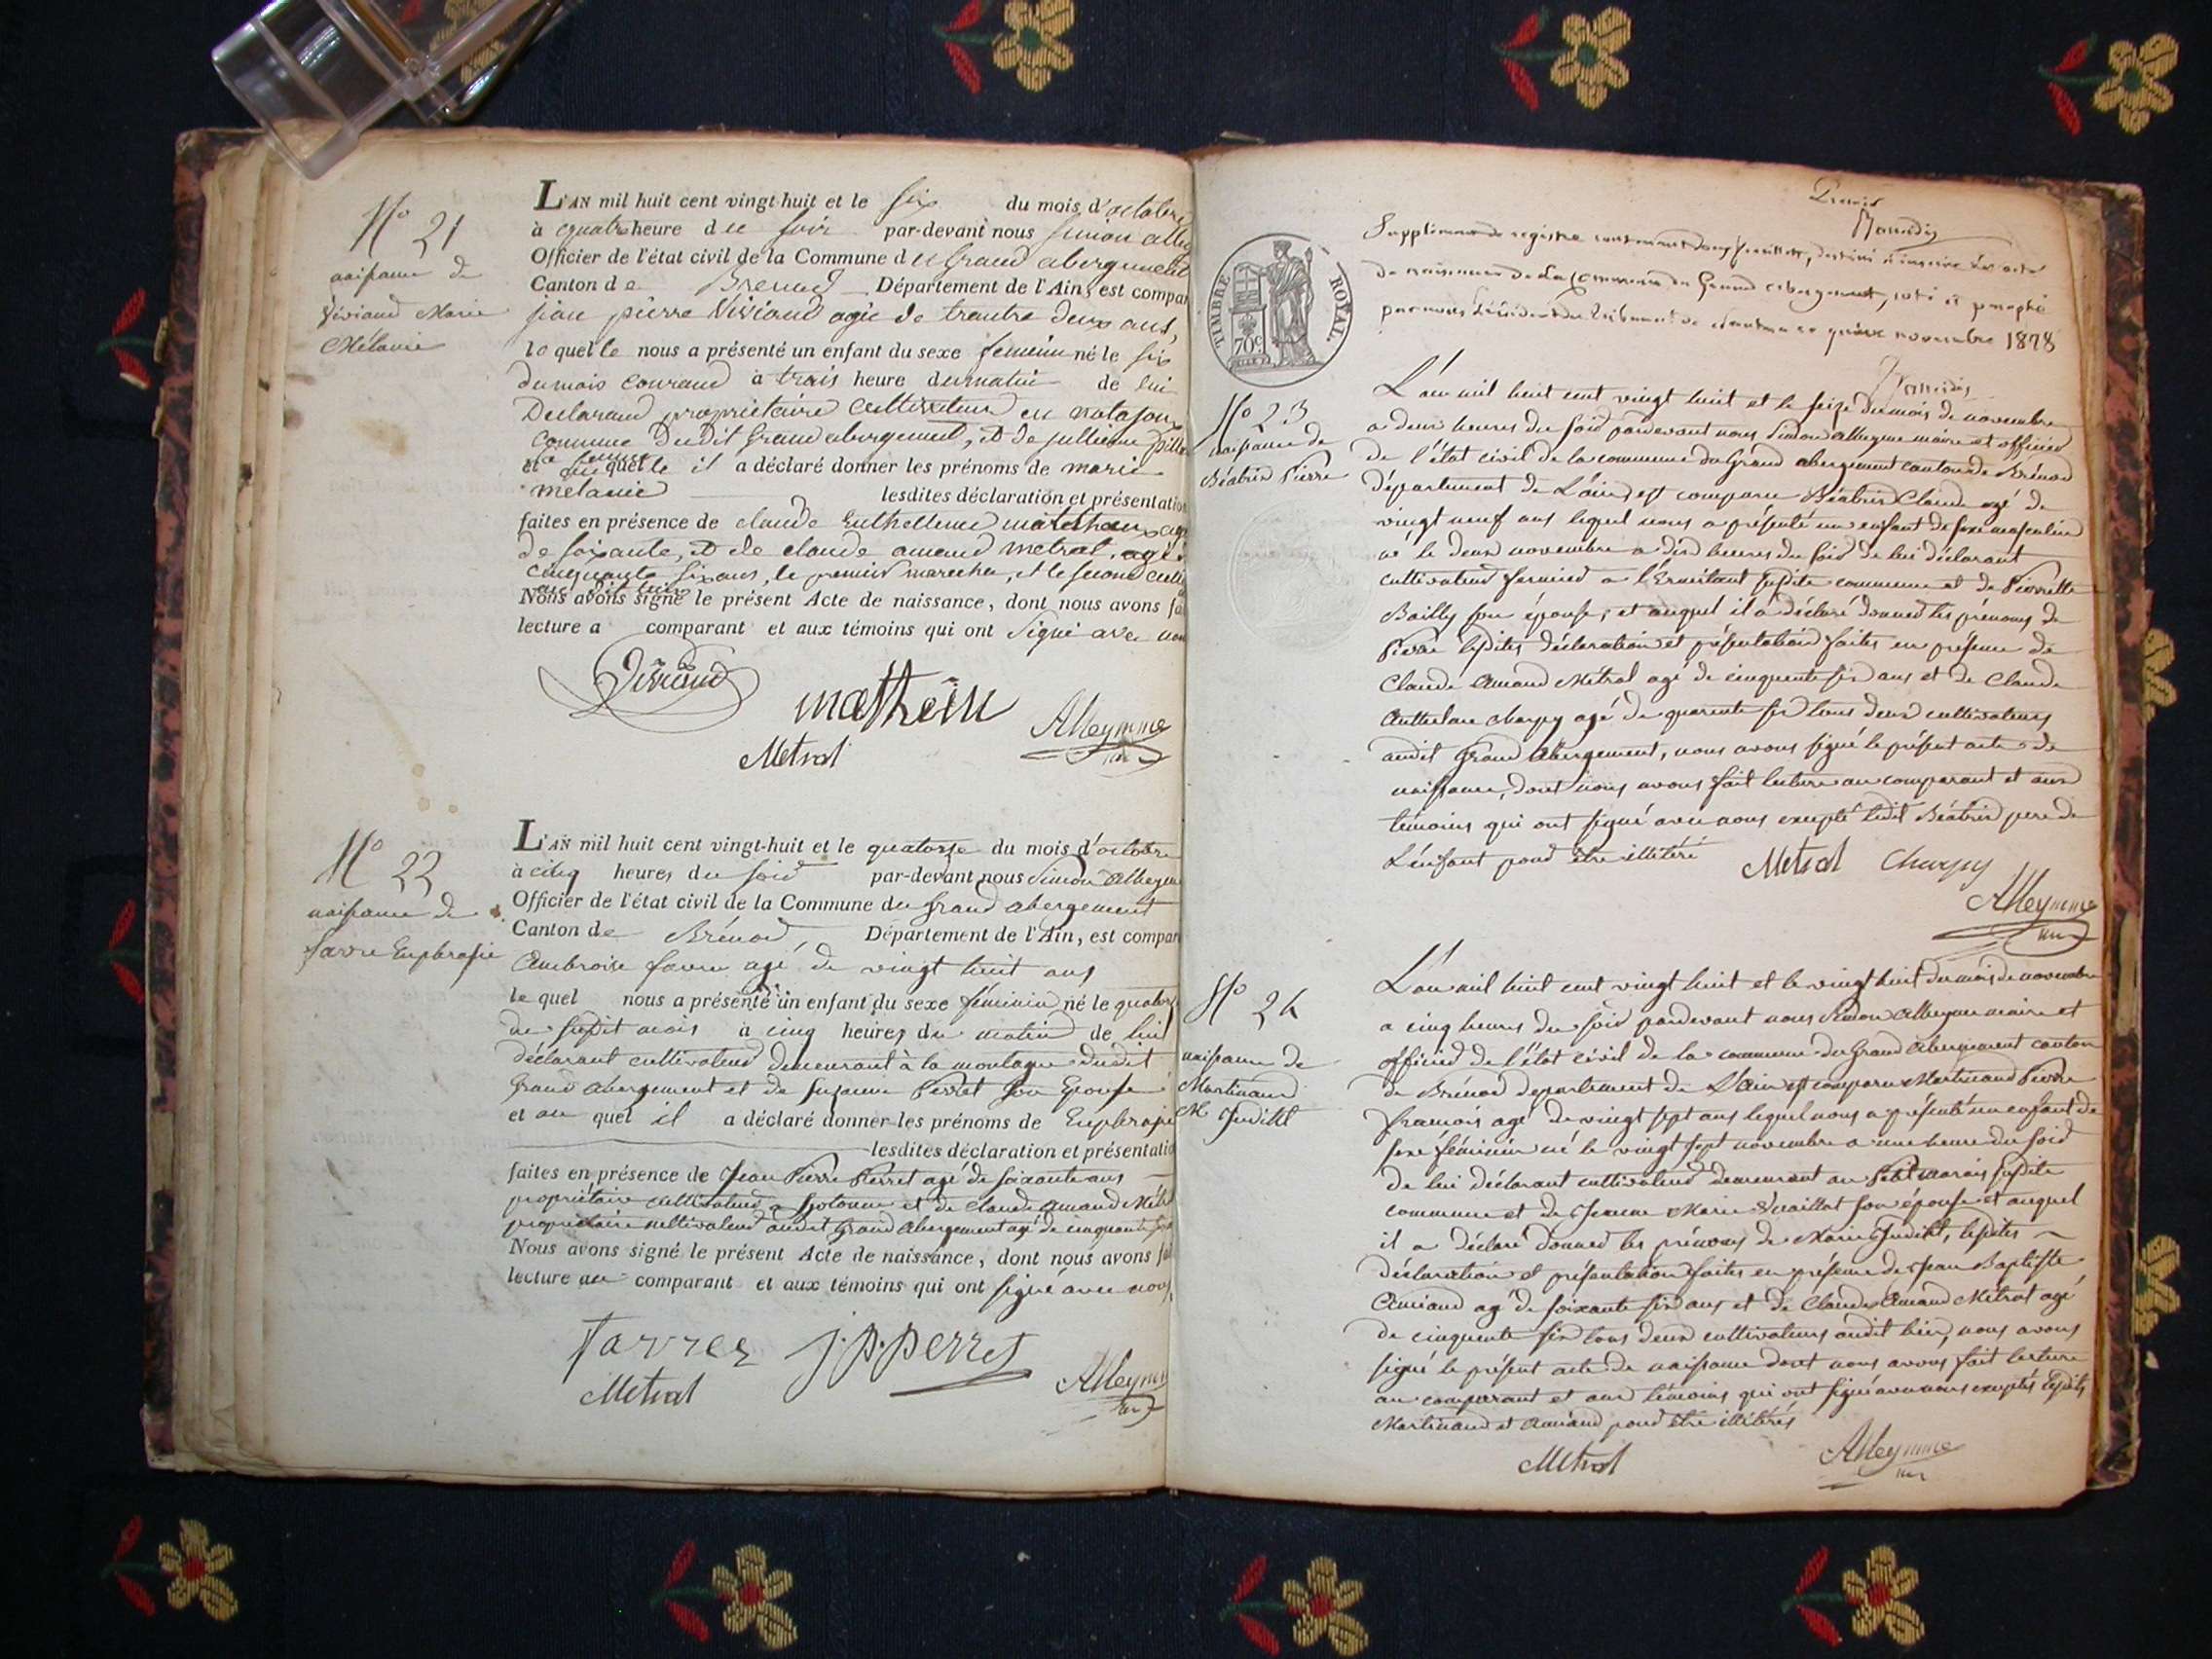 N° 21
naissance de
Viviand Marie
Mélanie
L'AN mil huit cent vingt-huit et le six du mois d'octobre
à quatre heure du soir par-devant nous simon alley
Officier de l'état civil de la Commune du Grand abergement
Canton de Brenod Département de l'Ain, est compar
jean pierre Viviand agé de trentre deux ans,
lequelle nous a présenté un enfant du sexe feminin né le six
du mois courand à trois heure dumatin de lui
Declarand propriétaire cultivateur en
commune dudit Grand abergement, et de jullienne
et quelle il a déclaré donner les prénoms de marie
melanie lesdites déclaration et présentation
faites en présence de claude
de soixante, et de claude amand metral, agé
cinquante six ans, le premier marecher, et le second culti
au dit lieu
Nous avons signé le présent Acte de naissance, dont nous avons fai
lecture a comparant et aux témoins qui ont signé avec nou
Viviand
Metral
Alleymme
N° 22
naissance de
favre Euphrasie
L'AN mil huit cent vingt-huit et le quatorze du mois d'octobre
à cinq heures du soir par-devant nous Simon Alleyme
Officier de l'état civil de la Commune du Grand abergement
Canton de Brénod Département de l'Ain, est compar
Ambroise favre agé de vingt huit ans
lequel nous a présenté un enfant du sexe féminin né le quatorz
de susdit mois à cinq heures du matin de lui
déclarant cultivateur demeurant à la montagne dudit
Grand abergement et de Suzanne Perret son Epouse
et au quel il a déclaré donner les prénoms de Euphrasie
lesdites déclaration et présentatio
faites en présence de Jean Pierre Perret agé de soixante ans
propriétaire cultivateur a hotonne et de Claude Amand Mét
propriétaire cultivateur audit Grand Abergement agé de cinquante six
Nous avons signé le présent Acte de naissance, dont nous avons fai
lecture au comparant et aux témoins qui ont signé avec nous.
favrez
j.p.perret
Metral
Alleym
TIMBRE ROYAL
70c
Supplément de registre contenant deux feuillets, destiné à inscrire les actes
de naissances de La Commune du Grand abergement, coté et paraphé
par nous Président du tribunal de Nantua ce quinze novembre 1828
N° 23
naissance de
Béatrix Pierre
L'an mil huit cent vingt huit et le seize du mois de novembre
a deux heures du soir pardevant nous Simon Alleyme maire et officier
de l'état civil de la commune du Grand abergement canton de Brénod
département de L'ain, est comparu Béatrix Claude agé de
vingt neuf ans lequel nous a présenté un enfant de sexe masculin
né le deux novembre a dix heures du soir de lui déclarant
cultivateur fermier a susdite commune et de Pierrette
Bailly son épouse, et auquel il a déclaré donner les prénoms de
Pierre lesdites déclaration et présentation faites en présence de
Claude Amand Métral agé de cinquente six ans et de Claude
Anthelme Charpy agé de quarente six tous deux cultivateurs
audit Grand Abergement, nous avons signé le présent acte de
naissance, dont nous avons fait lecture au comparant et aux
témoins qui ont signé avec nous excepté ledit Béatrix pere de
L'enfant pour être illétéré
Metral Charpy
Alleymme
N° 24
naissance de
Martinand
M. Judith
L'an mil huit cent vingt huit et le vingt huit du mois de novembre
a cinq heures du soir pardevant nous Simon Alleyme maire et
officier de l'état civil de la commune du Grand Abergement canton
de Brénod departement de L'ain est comparu Martinand Pierre
françois agé de vingt sept ans lequel nous a présenté un enfant de
sexe féminin né le vingt sept novembre a une heure du soir
de lui déclarant cultivateur demeurant au Petit marais susdite
commune et de Jeanne Marie son épouse et auquel
il a déclaré donner les prénoms de Marie Judith, lesdites
déclaration et présentation faites en présence de Jean Baptiste
agé de soixante six ans et de Claude Amand Métral agé
de cinquente six tous deux cultivateurs audit lieu, nous avons
signé le présent acte de naissance dont nous avons fait lecture
au comparant et aux témoins qui ont signé avec nous exceptés lesdits
Martinand et pour être illétérés
Metral
Alleymme